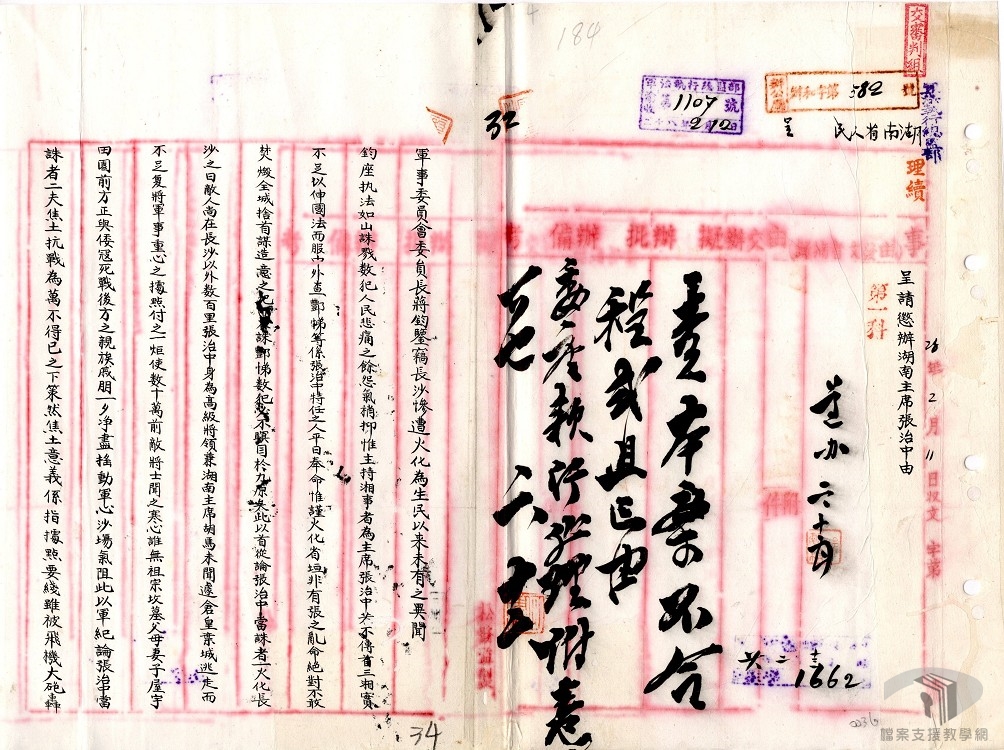 184
交審判組
軍法執行總監部
第1107號
2 12日
582
號
湖南省人民
呈
理續
事
擬辦
批辦
備考
28年2月11日收文 字第
第一科
呈請懲辦湖南主席張治中由
查本案不合
程式且已由
委座執行
1662
32
軍事委員會委員長蔣鈞鑒竊長沙慘遭火化為生民以來未有之異聞
鈞座執法如山誅戮數犯人民悲痛之餘怨氣稍抑惟主持湘事者為主席張治中若不傳首三湘實
不足以伸國法而服中外查酆悌等係張治中特任之人平日奉命惟謹火化省垣非有張之亂命絕對不敢
焚燬全城捨首謀造意之犯
誅酆悌數犯
不瞑目於九原矣此以首從論張治中當誅者一火化長
沙之日敵人尚在長沙以外數百里張治中身為高級將領兼湖南主席胡馬未聞遽倉皇棄城逃走而
不足复將軍事重心之據點付之一炬使數十萬前敵將士聞之寒心誰無祖宗坟墓父母妻子屋宇
田園前方正與倭寇死戰後方之親族戚朋一夕净盡搖動軍心沙場氣阻此以軍紀論張治中當
誅者二夫焦土抗戰為萬不得已之下策然焦土意義係指據點要綫雖被飛機大砲轟
34
0036
檔案支援教學網